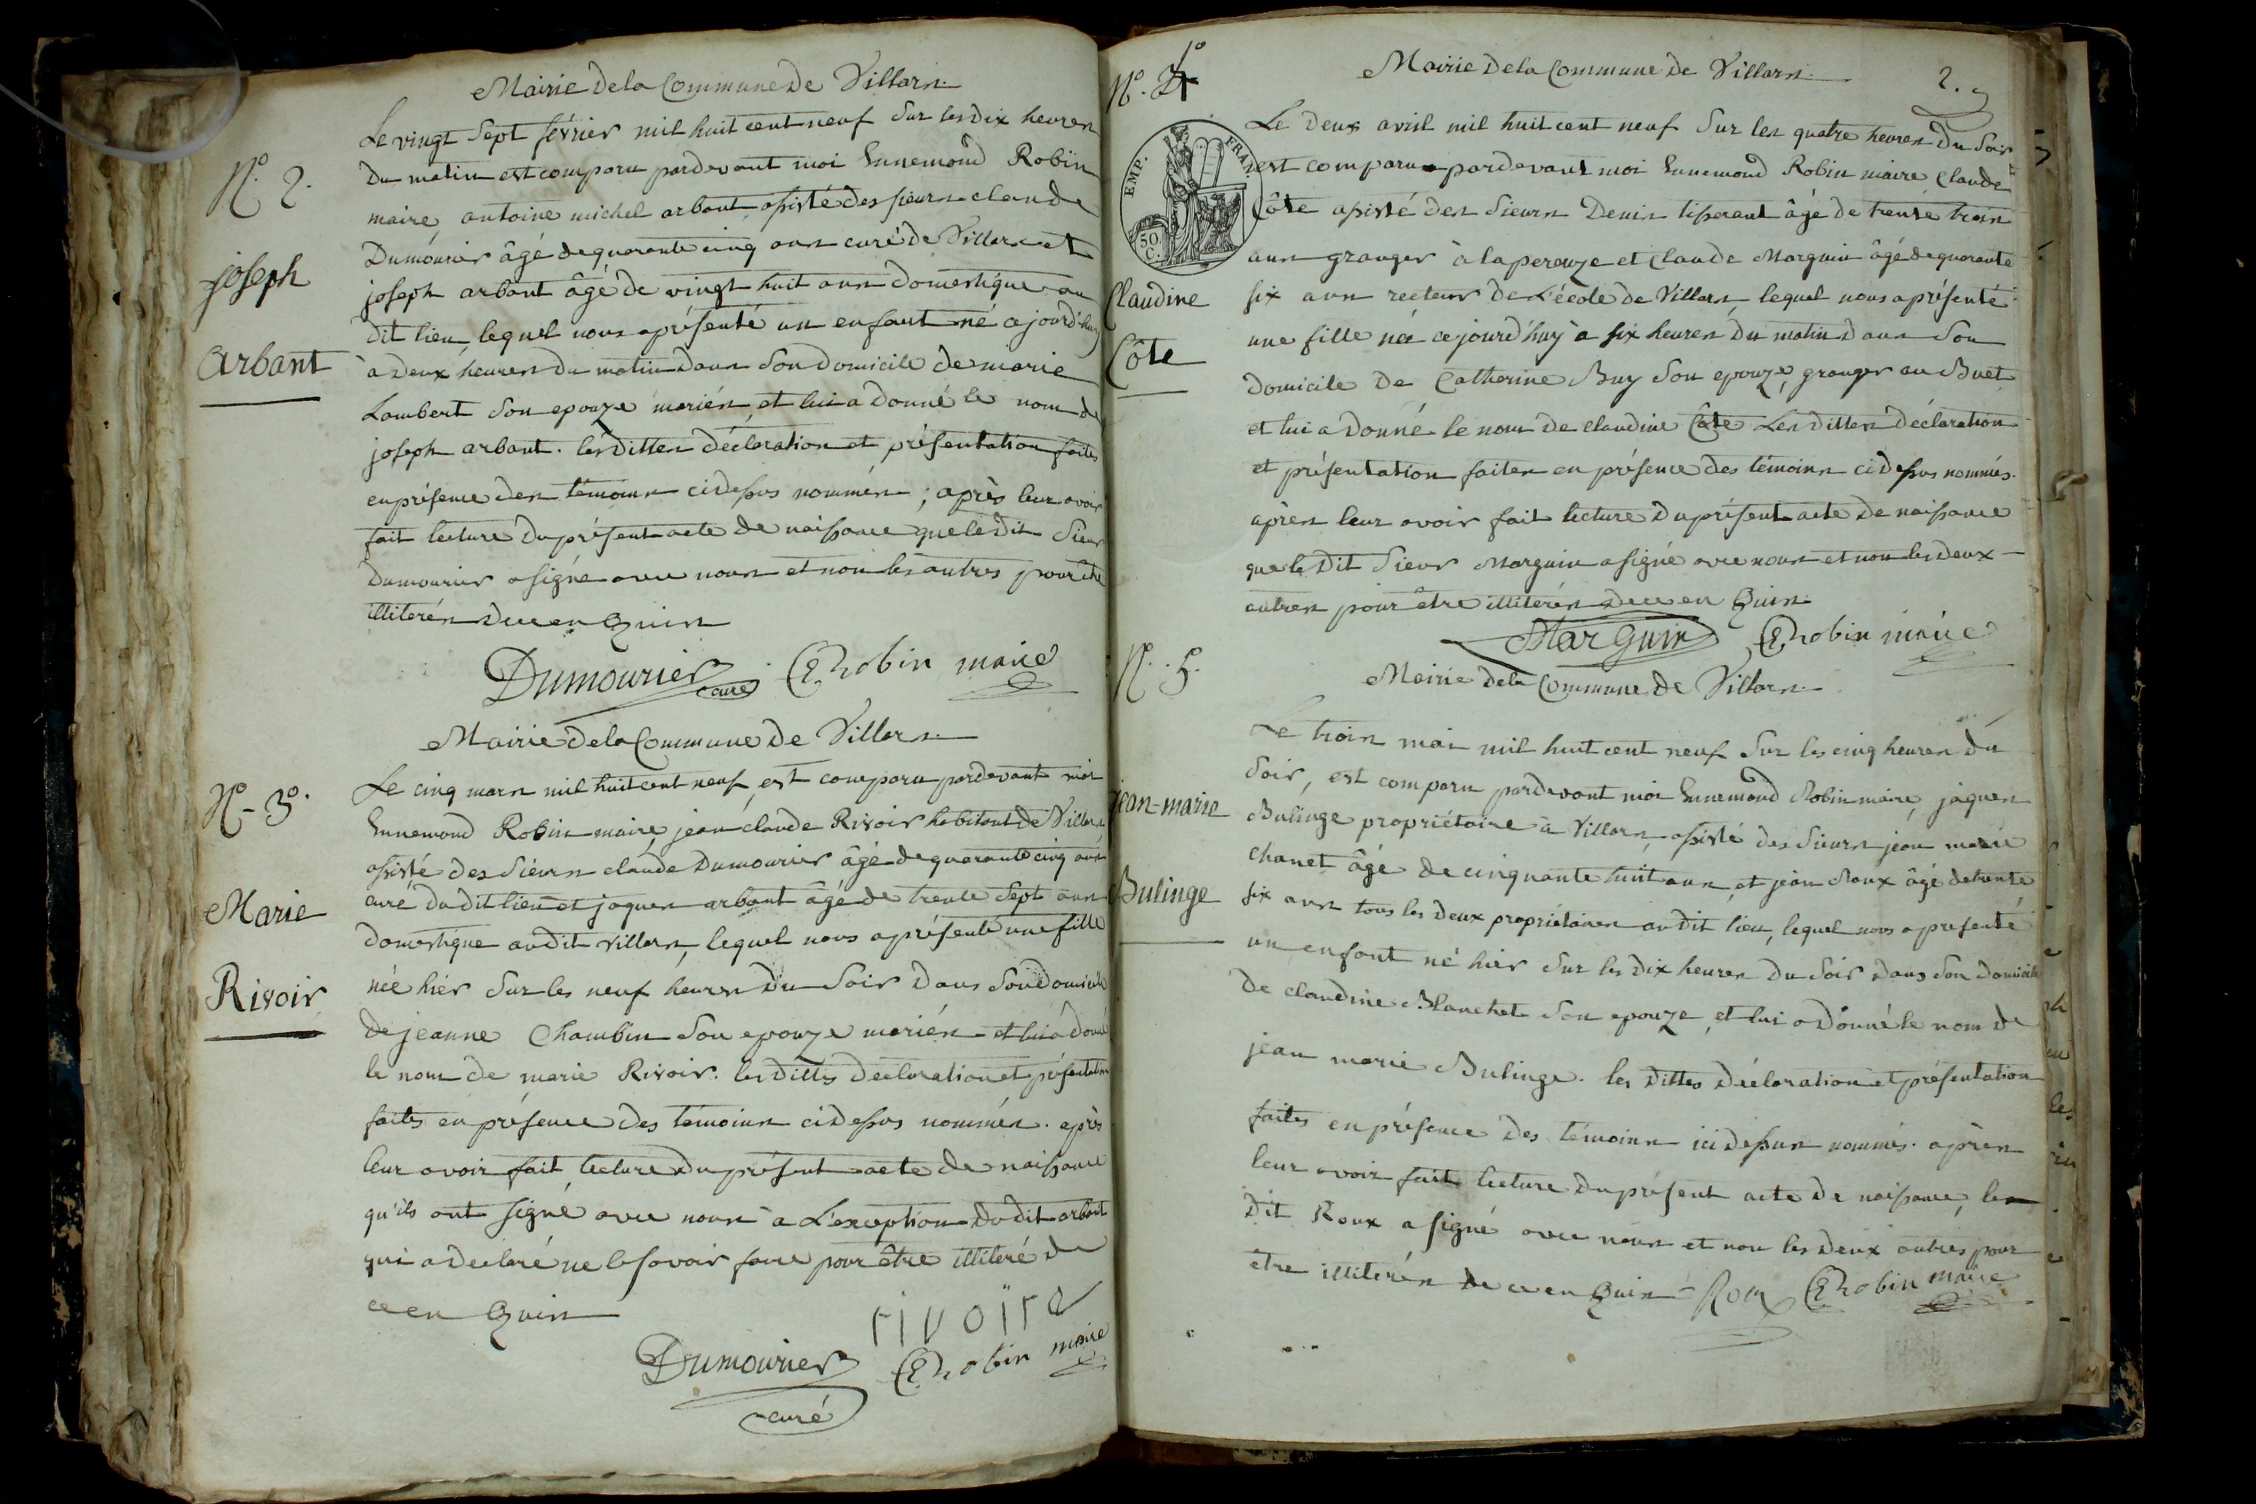 Mairie de la Commune de Villars
N.º 2.
joseph
arbant
Le vingt sept février mil huit cent neuf sur les dix heures
du matin est comparu pardevant moi Ennemond Robin
maire, antoine michel arbant assisté des sieurs claude
Dumourier âgé de quarante cinq ans curé de Villars et
joseph arbant âgé de vingt huit ans domestique au
dit lieu, lequel nous a présenté un enfant né cejourd'huy
à deux heures du matin dans son domicile de marie
Lambert son epouze mariés, et lui a donné le nom de
joseph arbant. les dittes déclaration et présentation faites
en présence des témoins cidessus nommés ; après leur avoir
fait lecture du présent acte de naissance que le dit Sieur
Dumourier a signé avec nous et non les autres pour être
illiterés de ce en Quis
Dumourier curé E Robin maire
Mairie de la Commune de Villars
N.º 3º.
Marie
Rivoir
Le cinq mars mil huit cent neuf, est comparu pardevant moi
Ennemond Robin maire, jean claude Rivoir habitant de Villars
assisté des Sieurs claude Dumourier âgé de quarante cinq ans
curé du dit lieu et jaques arbant âgé de trente sept ans
domestique audit Villars, lequel nous a présenté une fille
née hier sur les neuf heures du soir dans son domicile
de jeanne Chambin son epouze mariés et lui a donné
le nom de marie Rivoir. les dittes déclaration et présentation
faites en présence des témoins cidessus nommés. après
leur avoir fait lecture du présent acte de naissance
qu'ils ont signé avec nous à l'exception du dit arbant
qui a declaré ne le savoir faire pour être illiteré de
ce en Quis
rivoire
Dumourier E Robin maire
curé
Mairie de la Commune de Villars
2.
N.º 4º
EMP. FRAN.
50 C.
Claudine
Côte
Le deux avril mil huit cent neuf sur les quatre heures du soir
est comparu pardevant moi Ennemond Robin maire, claude
Côte assisté des Sieurs Denis tisserant âgé de trente trois
ans granger à la perouze et claude Marguin âgé de quarante
six ans recteur de l'école de Villars, lequel nous a présenté
une fille née cejourd'huy à six heures du matin dans son
domicile de Catherine Buy son epouze, granger au Buet
et lui a donné le nom de claudine Côte Les dittes déclaration
et présentation faites en présence des témoins cidessus nommés.
après leur avoir fait lecture du présent acte de naissance
que le dit Sieur Marguin a signé avec nous et non les deux
autres pour être illiterés de ce en Quis
Marguin E Robin maire
N.º 5.
Mairie de la Commune de Villars
jean-marie
Bulinge
Le trois mai mil huit cent neuf sur les cinq heures du
soir, est comparu pardevant moi Ennemond Robin maire, jaques
Bulinge propriétaire à Villars, assisté des Sieurs jean marie
chanet âgé de cinquante huit ans, et jean Roux âgé de trente
six ans tous les deux propriétaires audit lieu, lequel nous a presenté
un enfant né hier sur les dix heures du soir dans son domicile
de claudine Blanchet son epouze, et lui a donné le nom de
jean marie Bulinge. les dittes déclaration et présentation
faites en présence des témoins ici dessus nommés. après
leur avoir fait lecture du présent acte de naissance, le
dit Roux a signé avec nous et non les deux autres pour
etre illiterés de ce en Quis Roux E Robin maire